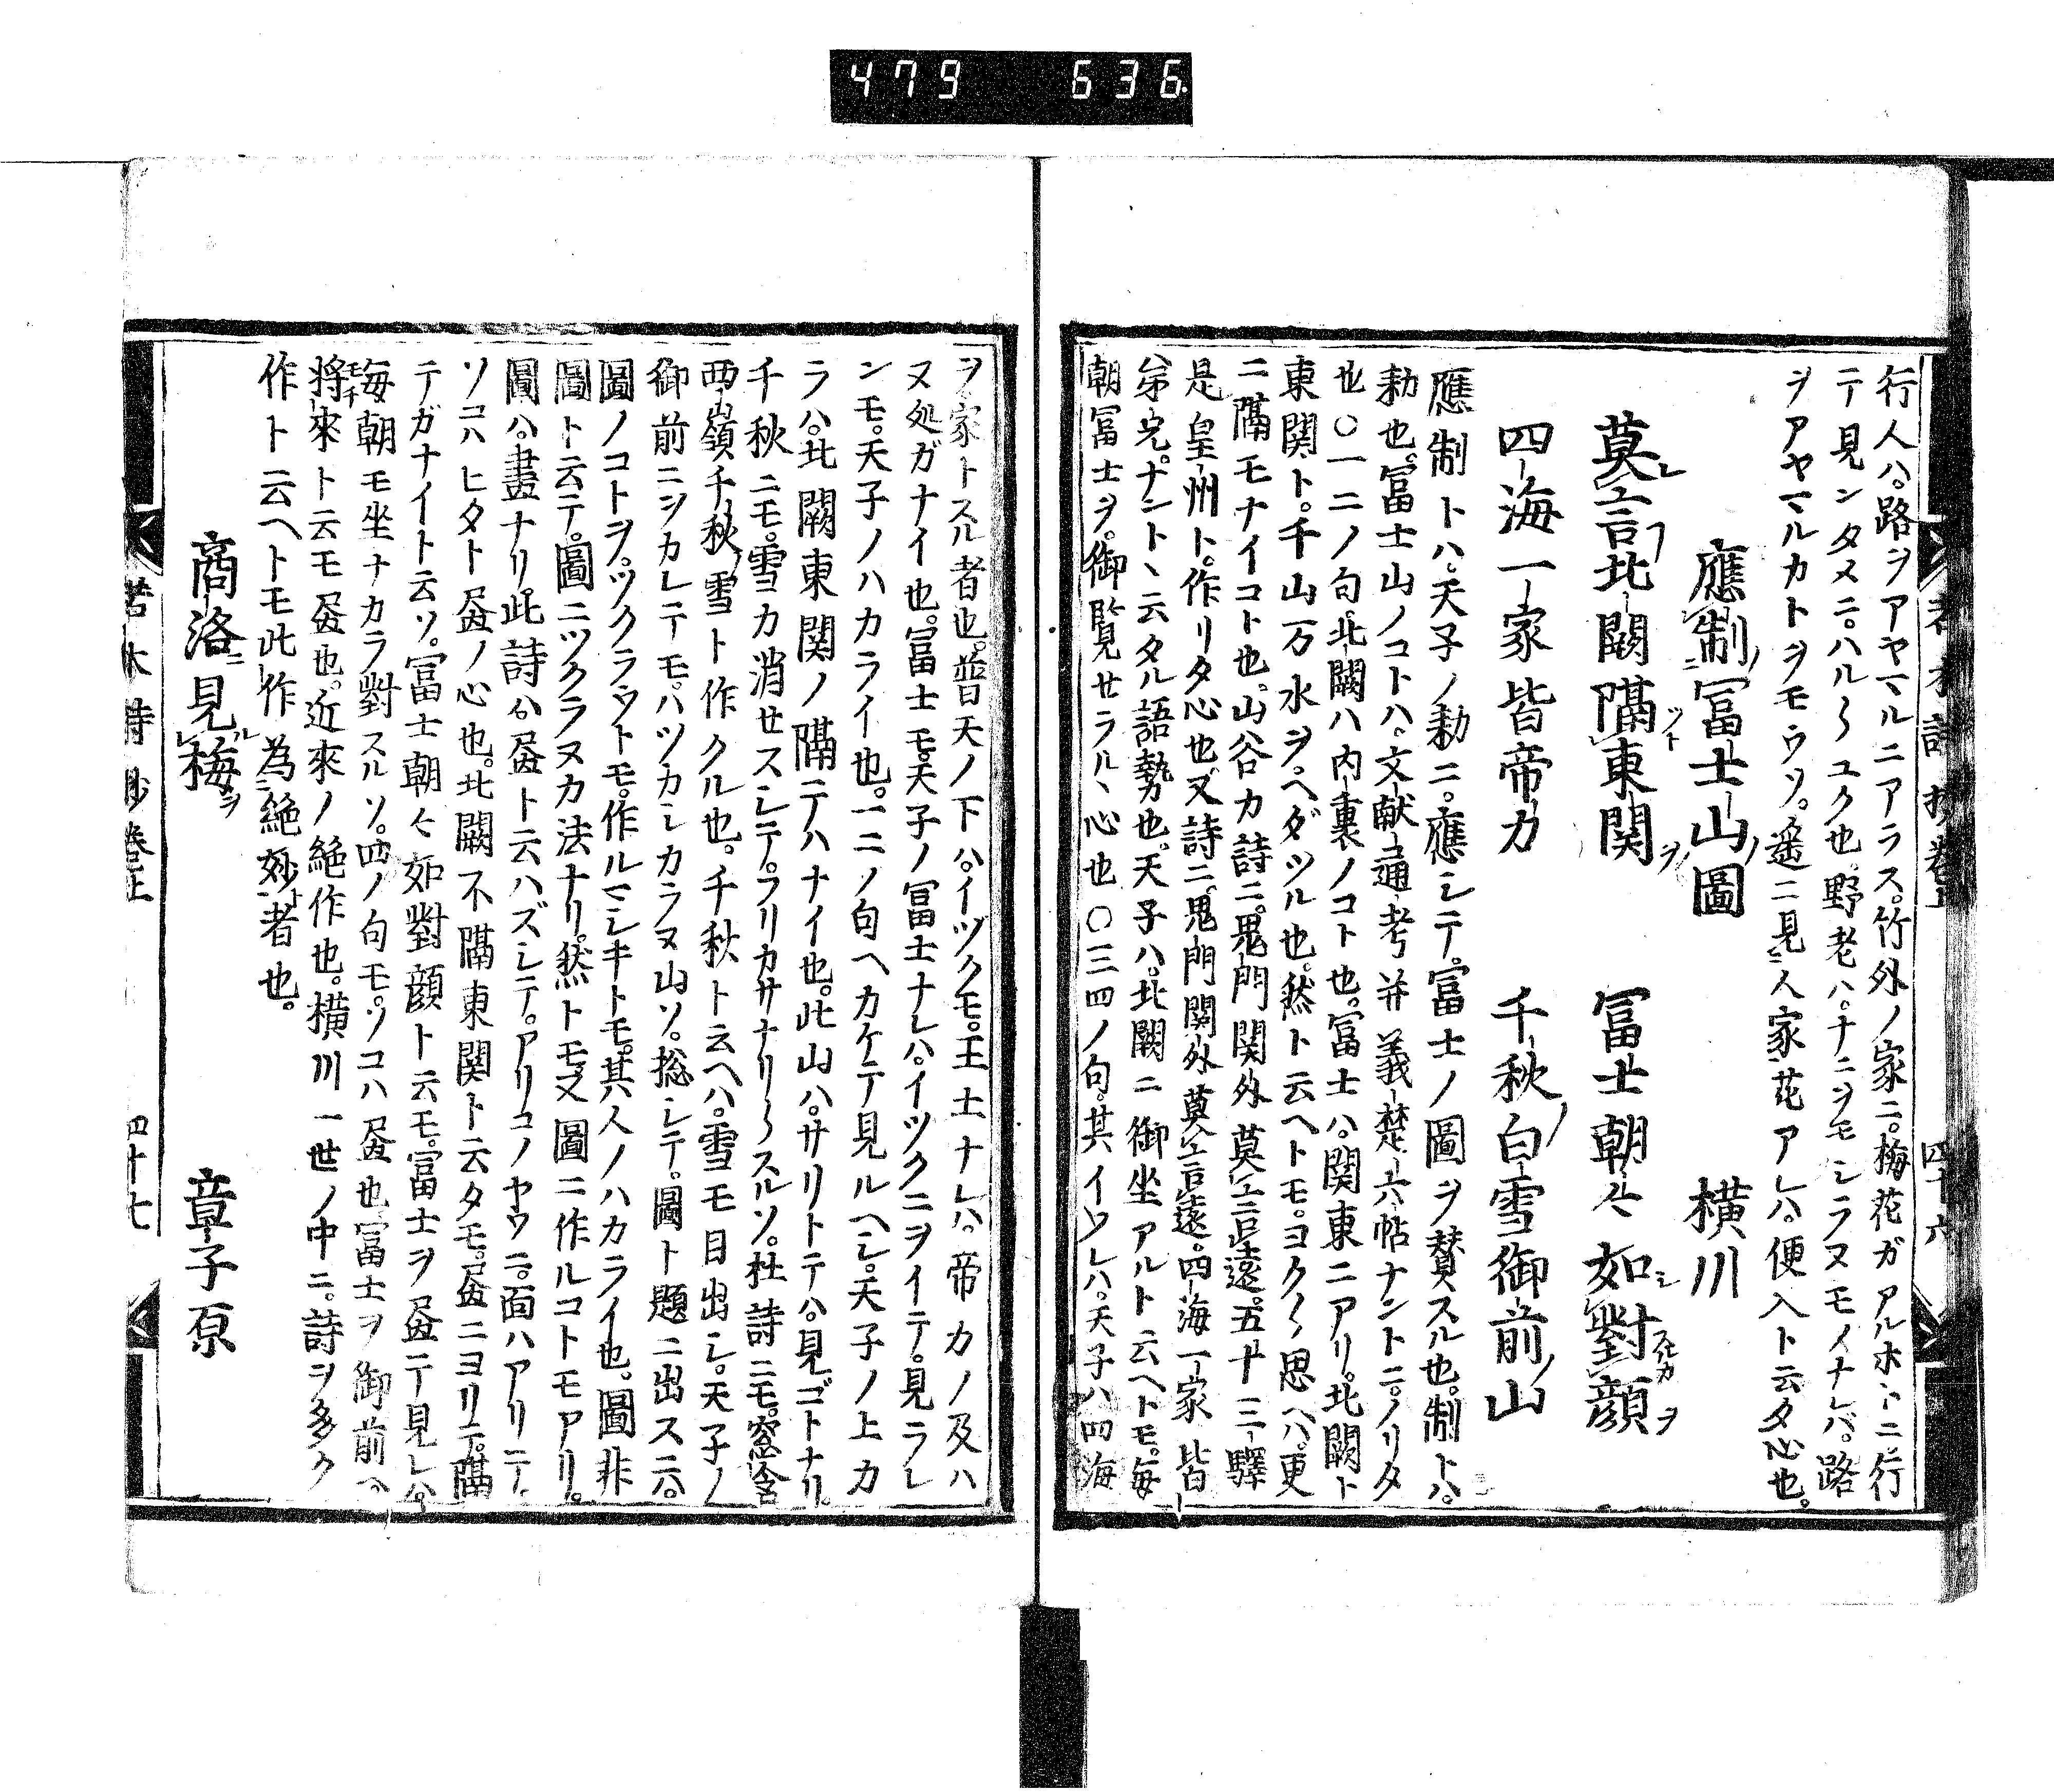 479 636
行人ハ。路ヲアヤマルニアラス。竹外ノ家ニ。梅花ガアルホトニ。行
テ見ンタメニ。ハル〱ユク也。野老ハ。ナニヲモシラヌモノナレバ。路
ヲアヤマルカトヲモウソ。遥ニ見人家花アレハ。便入ト云タ心也。
應制冨士山圖 横川
莫言北闕隔東関 冨士朝々如對顔
四海一家皆帝力 千秋白雪御前山
應制トハ。天子ノ勅ニ。應シテ。冨士ノ圖ヲ賛スル也。制トハ。
勅也。冨士山ノコトハ。文献通考并義楚六帖ナントニ。ノリタ
也〇一二ノ句。北闕ハ内裏ノコト也。冨士ハ。関東ニアリ。北闕ト
東関ト。千山万水ヲ。ヘダツル也。然ト云ヘトモ。ヨク〱思ヘハ。更
ニ隔モナイコト也。山谷カ詩ニ。鬼門関外莫言遠。五十三驛
是皇州ト。作リタ心也。又詩ニ。鬼門関外莫言遠。四海一家皆
弟兄。ナントヽ云タル語勢也。天子ハ。北闕ニ御坐アルト云ヘトモ。毎
朝冨士ヲ。御覧セラルヽ心也〇三四ノ句。其イワレハ。天子ハ四海
ヲ家トスル者也。普天ノ下ハ。イヅクモ。王土ナレハ。帝力ノ及ハ
ヌ処ガナイ也。冨士モ。天子ノ冨士ナレハ。イツクニヲイテ。見ラレ
ンモ。天子ノハカライ也。一二ノ句ヘカケテ見ルヘシ。天子ノ上カ
ラハ。北闕東関ノ隔テハナイ也。此山ハ。サリトテハ。見ゴトナリ。
千秋ニモ。雪カ消セスシテ。フリカサナリ〱スルソ。杜詩ニモ。窓含
西嶺千秋雪ト作クル也。千秋ト云ヘハ。雪モ目出シ。天子ノ
御前ニヲカレテモ。ハツカシカラヌ山ソ。惣シテ。圖ト題ニ出スニハ。
圖ノコトヲ。ツクラウトモ。作ルマシキトモ。其人ノハカライ也。圖非
圖ト云テ。圖ニツクラヌカ法ナリ。然トモ又圖ニ作ルコトモアリ。
圖ハ。畫ナリ。此詩ハ。畳ト云ハズシテ。アリコノヤウニ。面ハアリテ。
ソコハヒタト畳ノ心也。北闕不隔東関ト云タモ。畳ニヨリテ。隔
テガナイト云ソ。冨士朝々如對顔ト云モ。冨士ヲ畳テ見レハ。
毎朝モ坐ナカラ對スルソ。四ノ句モ。ソコハ畳也冨士ヲ御前ヘ
将來ト云モ畳也。近來ノ絶作也。横川一世ノ中ニ。詩ヲ多ク
作ト云ヘトモ此作為絶妙者也。
商洛見梅 章子原